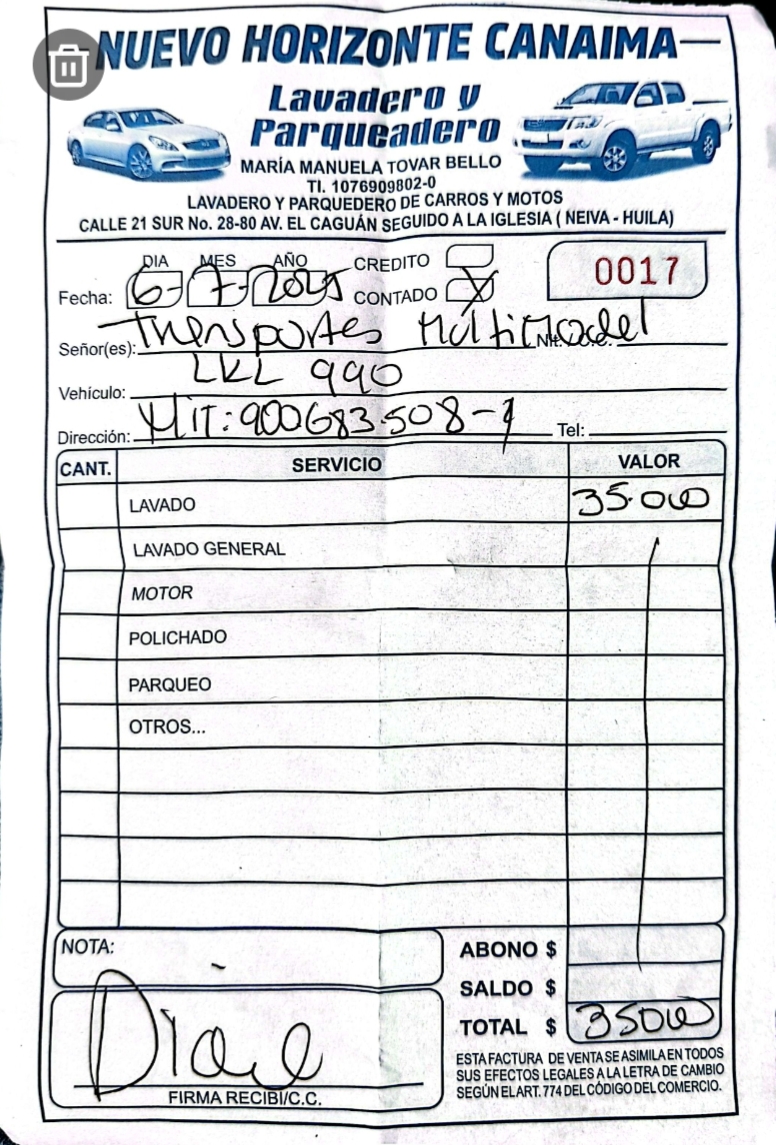 NUEVO HORIZONTE CANAIMA
Lavadero y
Parqueadero
MARÍA MANUELA TOVAR BELLO
TI. 1076909802-0
LAVADERO Y PARQUEDERO DE CARROS Y MOTOS
CALLE 21 SUR No. 28-80 AV. EL CAGUÁN SEGUIDO A LA IGLESIA ( NEIVA - HUILA)
DIA MES AÑO CREDITO
Fecha: 6-7-2025 CONTADO X 0017
Señor(es): Transportes Multimodal
Vehículo: LKL 990
Dirección: NIT: 900683.508-9 Tel:
CANT. SERVICIO VALOR
LAVADO 35.000
LAVADO GENERAL
MOTOR
POLICHADO
PARQUEO
OTROS...
NOTA:
ABONO $
SALDO $
TOTAL $ 35000
FIRMA RECIBI/C.C.
ESTA FACTURA DE VENTA SE ASIMILA EN TODOS
SUS EFECTOS LEGALES A LA LETRA DE CAMBIO
SEGÚN EL ART. 774 DEL CÓDIGO DEL COMERCIO.